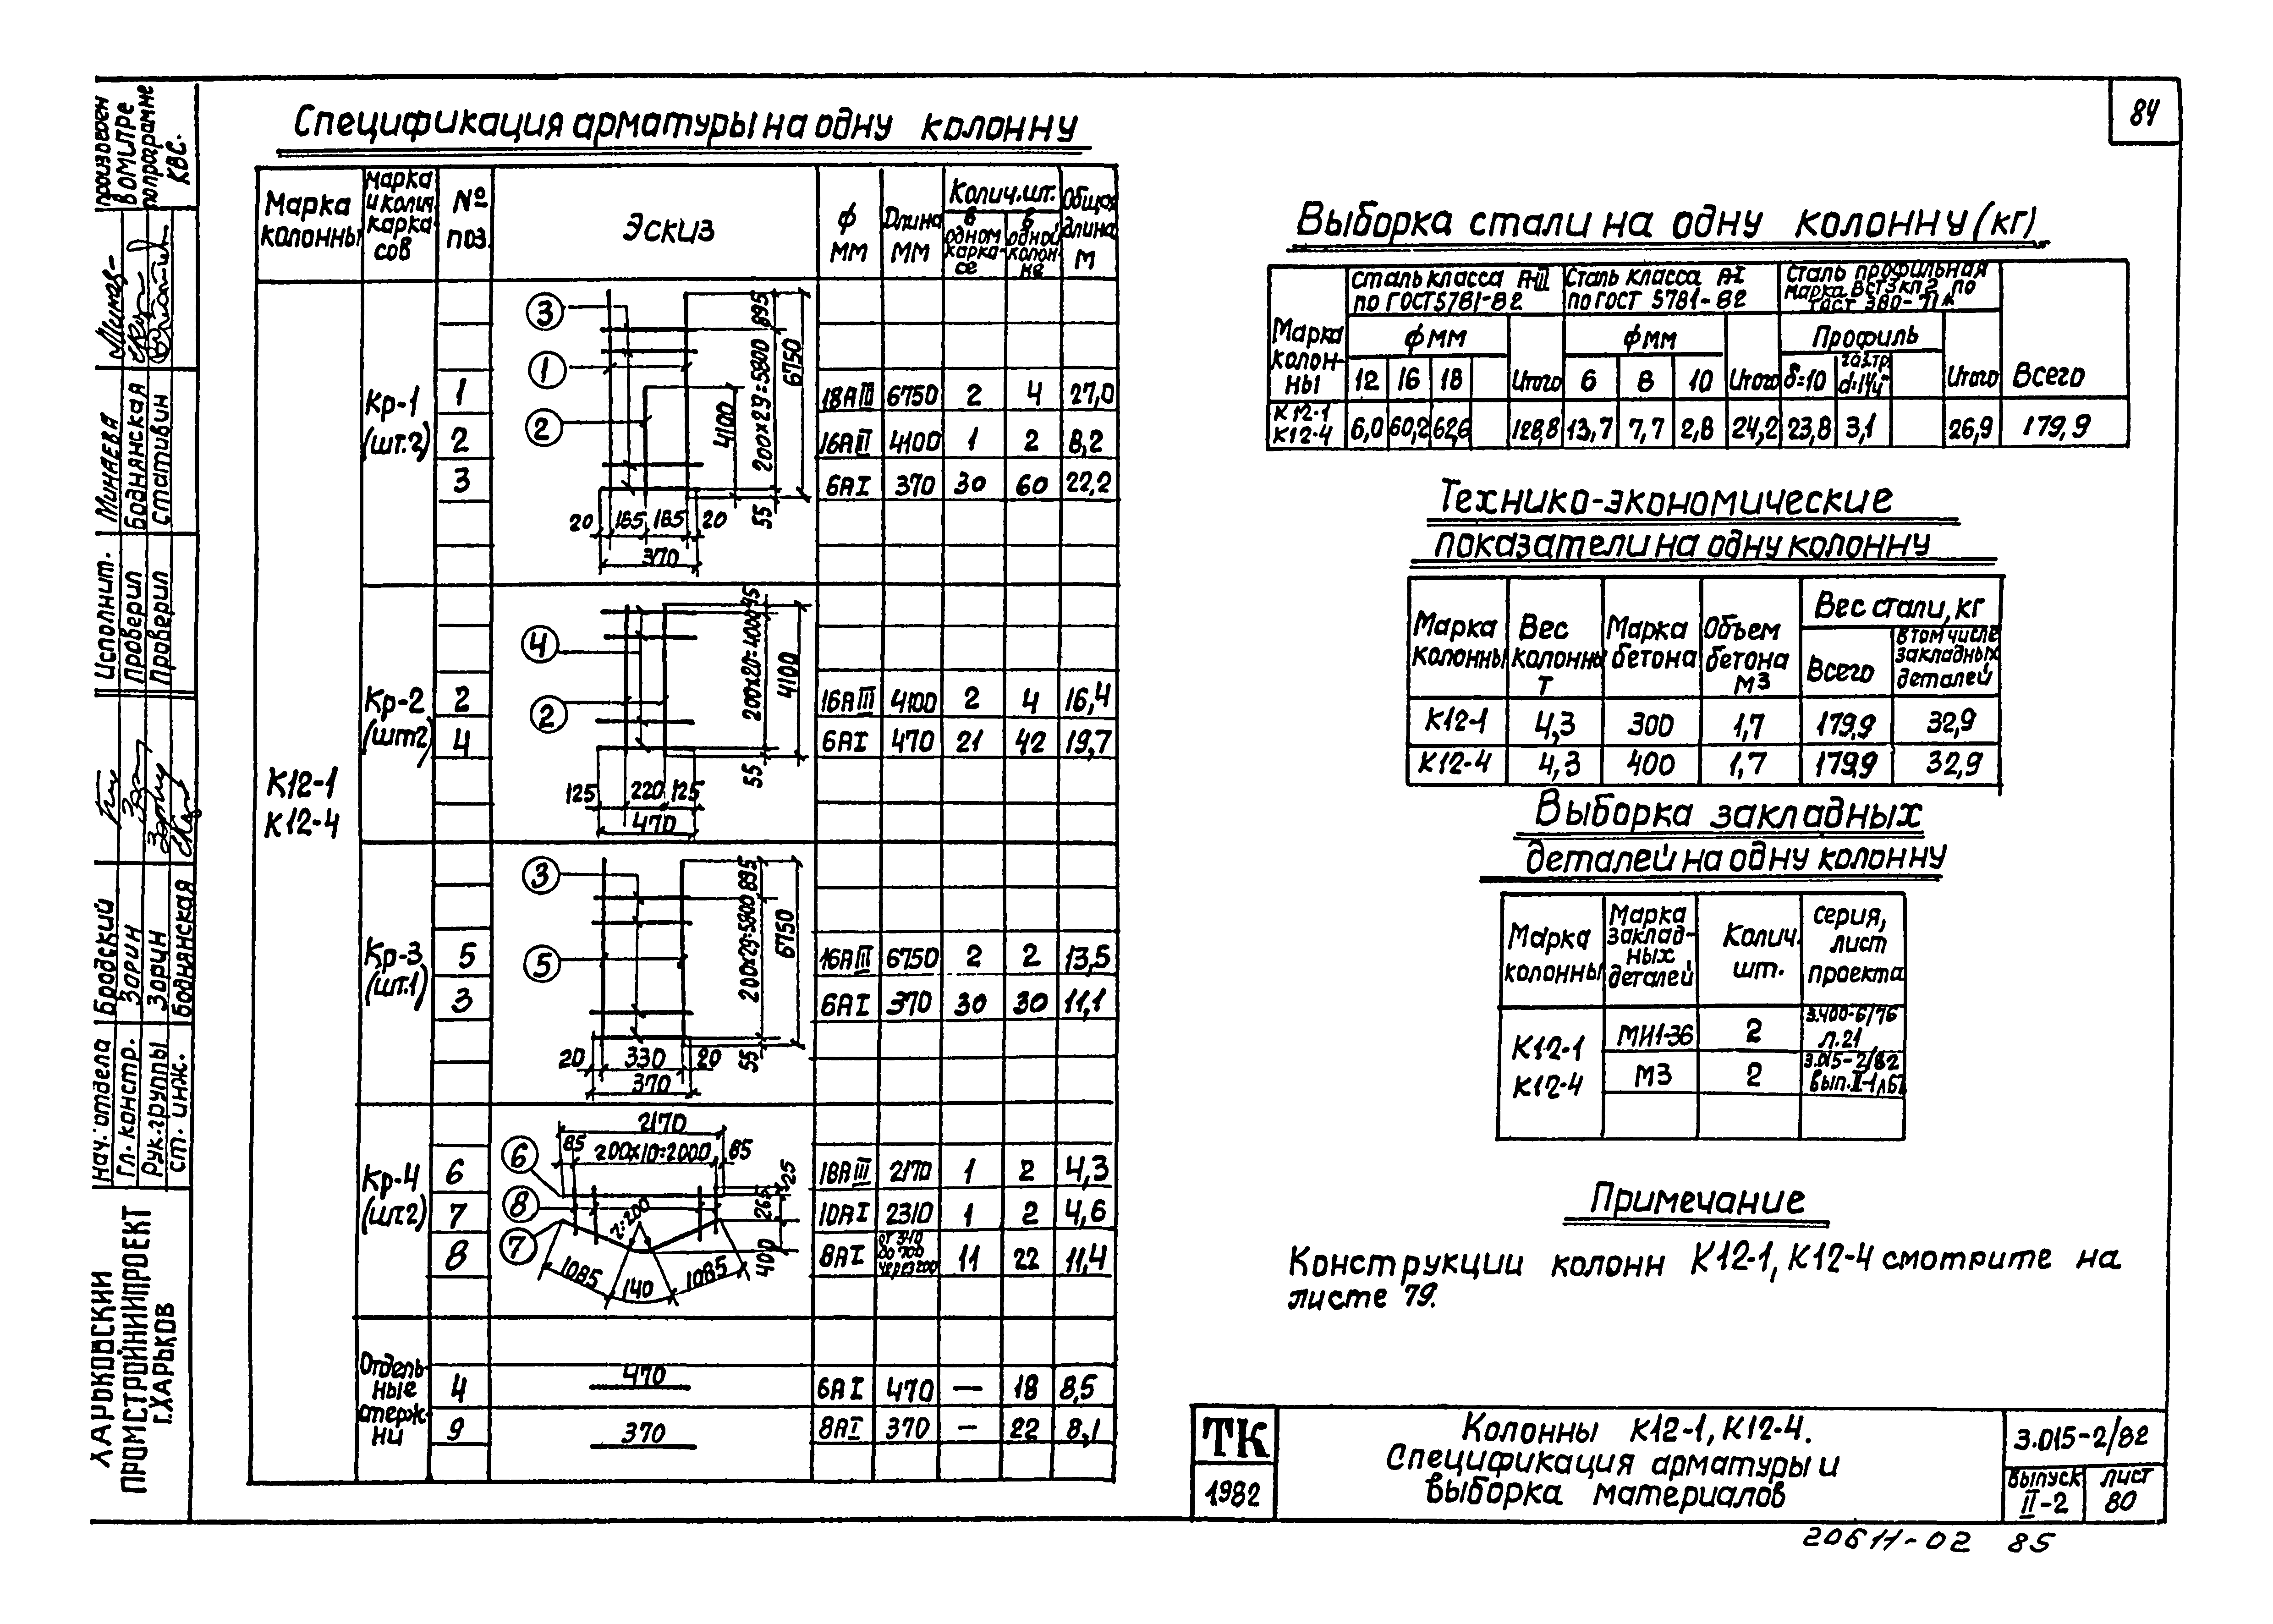 84
Спецификация арматуры на одну колонну
Марка колонны
марка и колич каркасов
№ поз.
Эскиз
ф мм
Длина мм
Колич. шт.
в одном каркасе
в одной колонне
Общая длина м
К12-1
К12-4
Кр-1 (шт.2)
1 18АIII 6750 2 4 27,0
2 16АIII 4100 1 2 8,2
3 6АI 370 30 60 22,2
3 1 2
895 200х29=5800 55 6750 4100
20 185 185 20
370
Кр-2 (шт2)
2 16АIII 4100 2 4 16,4
4 6АI 470 21 42 19,7
4 2
45 200х20=4000 55 4100
125 220 125
470
Кр-3 (шт.1)
5 16АIII 6750 2 2 13,5
3 6АI 370 30 30 11,1
3 5
895 200х29=5800 55 6750
20 330 20
370
Кр-4 (шт.2)
6 18АIII 2170 1 2 4,3
7 10АI 2310 1 2 4,6
8 8АI от 340 до 700 через 200 11 22 11,4
6 8 7
2170
85 200х10=2000 85
25 265 400
r=200
1085 140 1085
Отдельные стержни
4 470 6АI 470 — 18 8,5
9 370 8АI 370 — 22 8,1
Выборка стали на одну колонну (кг)
Марка колонны
Сталь класса А-III по ГОСТ 5781-82
Сталь класса А-I по ГОСТ 5781-82
Сталь профильная марка ВСт3кп2 по ГОСТ 380-71*
фмм фмм Профиль
12 16 18 Итого 6 8 10 Итого δ=10 газ.тр. d=1¼" Итого Всего
К12-1
К12-4 6,0 60,2 62,6 128,8 13,7 7,7 2,8 24,2 23,8 3,1 26,9 179,9
Технико-экономические
показатели на одну колонну
Марка колонны
Вес колонны т
Марка бетона
Объем бетона м3
Вес стали, кг
Всего
в том числе закладных деталей
К12-1 4,3 300 1,7 179,9 32,9
К12-4 4,3 400 1,7 179,9 32,9
Выборка закладных
деталей на одну колонну
Марка колонны
Марка закладных деталей
Колич. шт.
серия, лист проекта
К12-1
К12-4
МИ1-36 2 3.400-6/76 л.21
М3 2 3.015-2/82 вып.II-1
Примечание
Конструкции колонн К12-1, К12-4 смотрите на
листе 79.
ТК
1982
Колонны К12-1, К12-4.
Спецификация арматуры и
выборка материалов
3.015-2/82
выпуск II-2
лист 80
20611-02 85
произведен
в омпре
по программе
КВС.
Минаева
Боднянская
Стативин
Исполнит.
Проверил
Проверил
Бродский
Зорин
Зорин
Боднянская
Нач. отдела
Гл. констр.
Рук. группы
ст. инж.
Харьковский
Промстройниипроект
г. Харьков